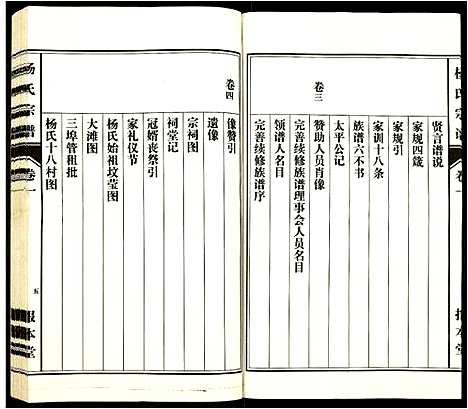 杨氏宗谱
卷一
报本堂
贤言谱说
家规四箴
家规引
家训十八条
族谱六不书
太平公记
卷三
赞助人员肖像
完善续修族谱理事会人员名目
领谱人名目
完善续修族谱序
卷四
像赞引
遗像
宗祠图
祠堂记
冠婚丧祭引
家礼仪节
杨氏始祖坟茔图
大滩图
三埠管租批
杨氏十八村图
杨氏宗谱
卷一
五
报本堂